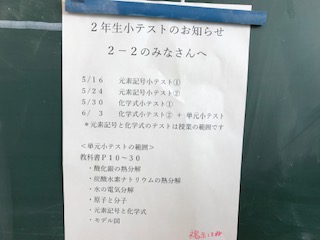 2年生小テストのお知らせ
2－2のみなさんへ
5/16 元素記号小テスト①
5/24 元素記号小テスト②
5/30 化学式小テスト①
6/ 3 化学式小テスト② + 単元小テスト
＊元素記号と化学式のテストは授業の範囲です
＜単元小テストの範囲＞
教科書P10～30
・酸化銀の熱分解
・炭酸水素ナトリウムの熱分解
・水の電気分解
・原子と分子
・元素記号と化学式
・モデル図